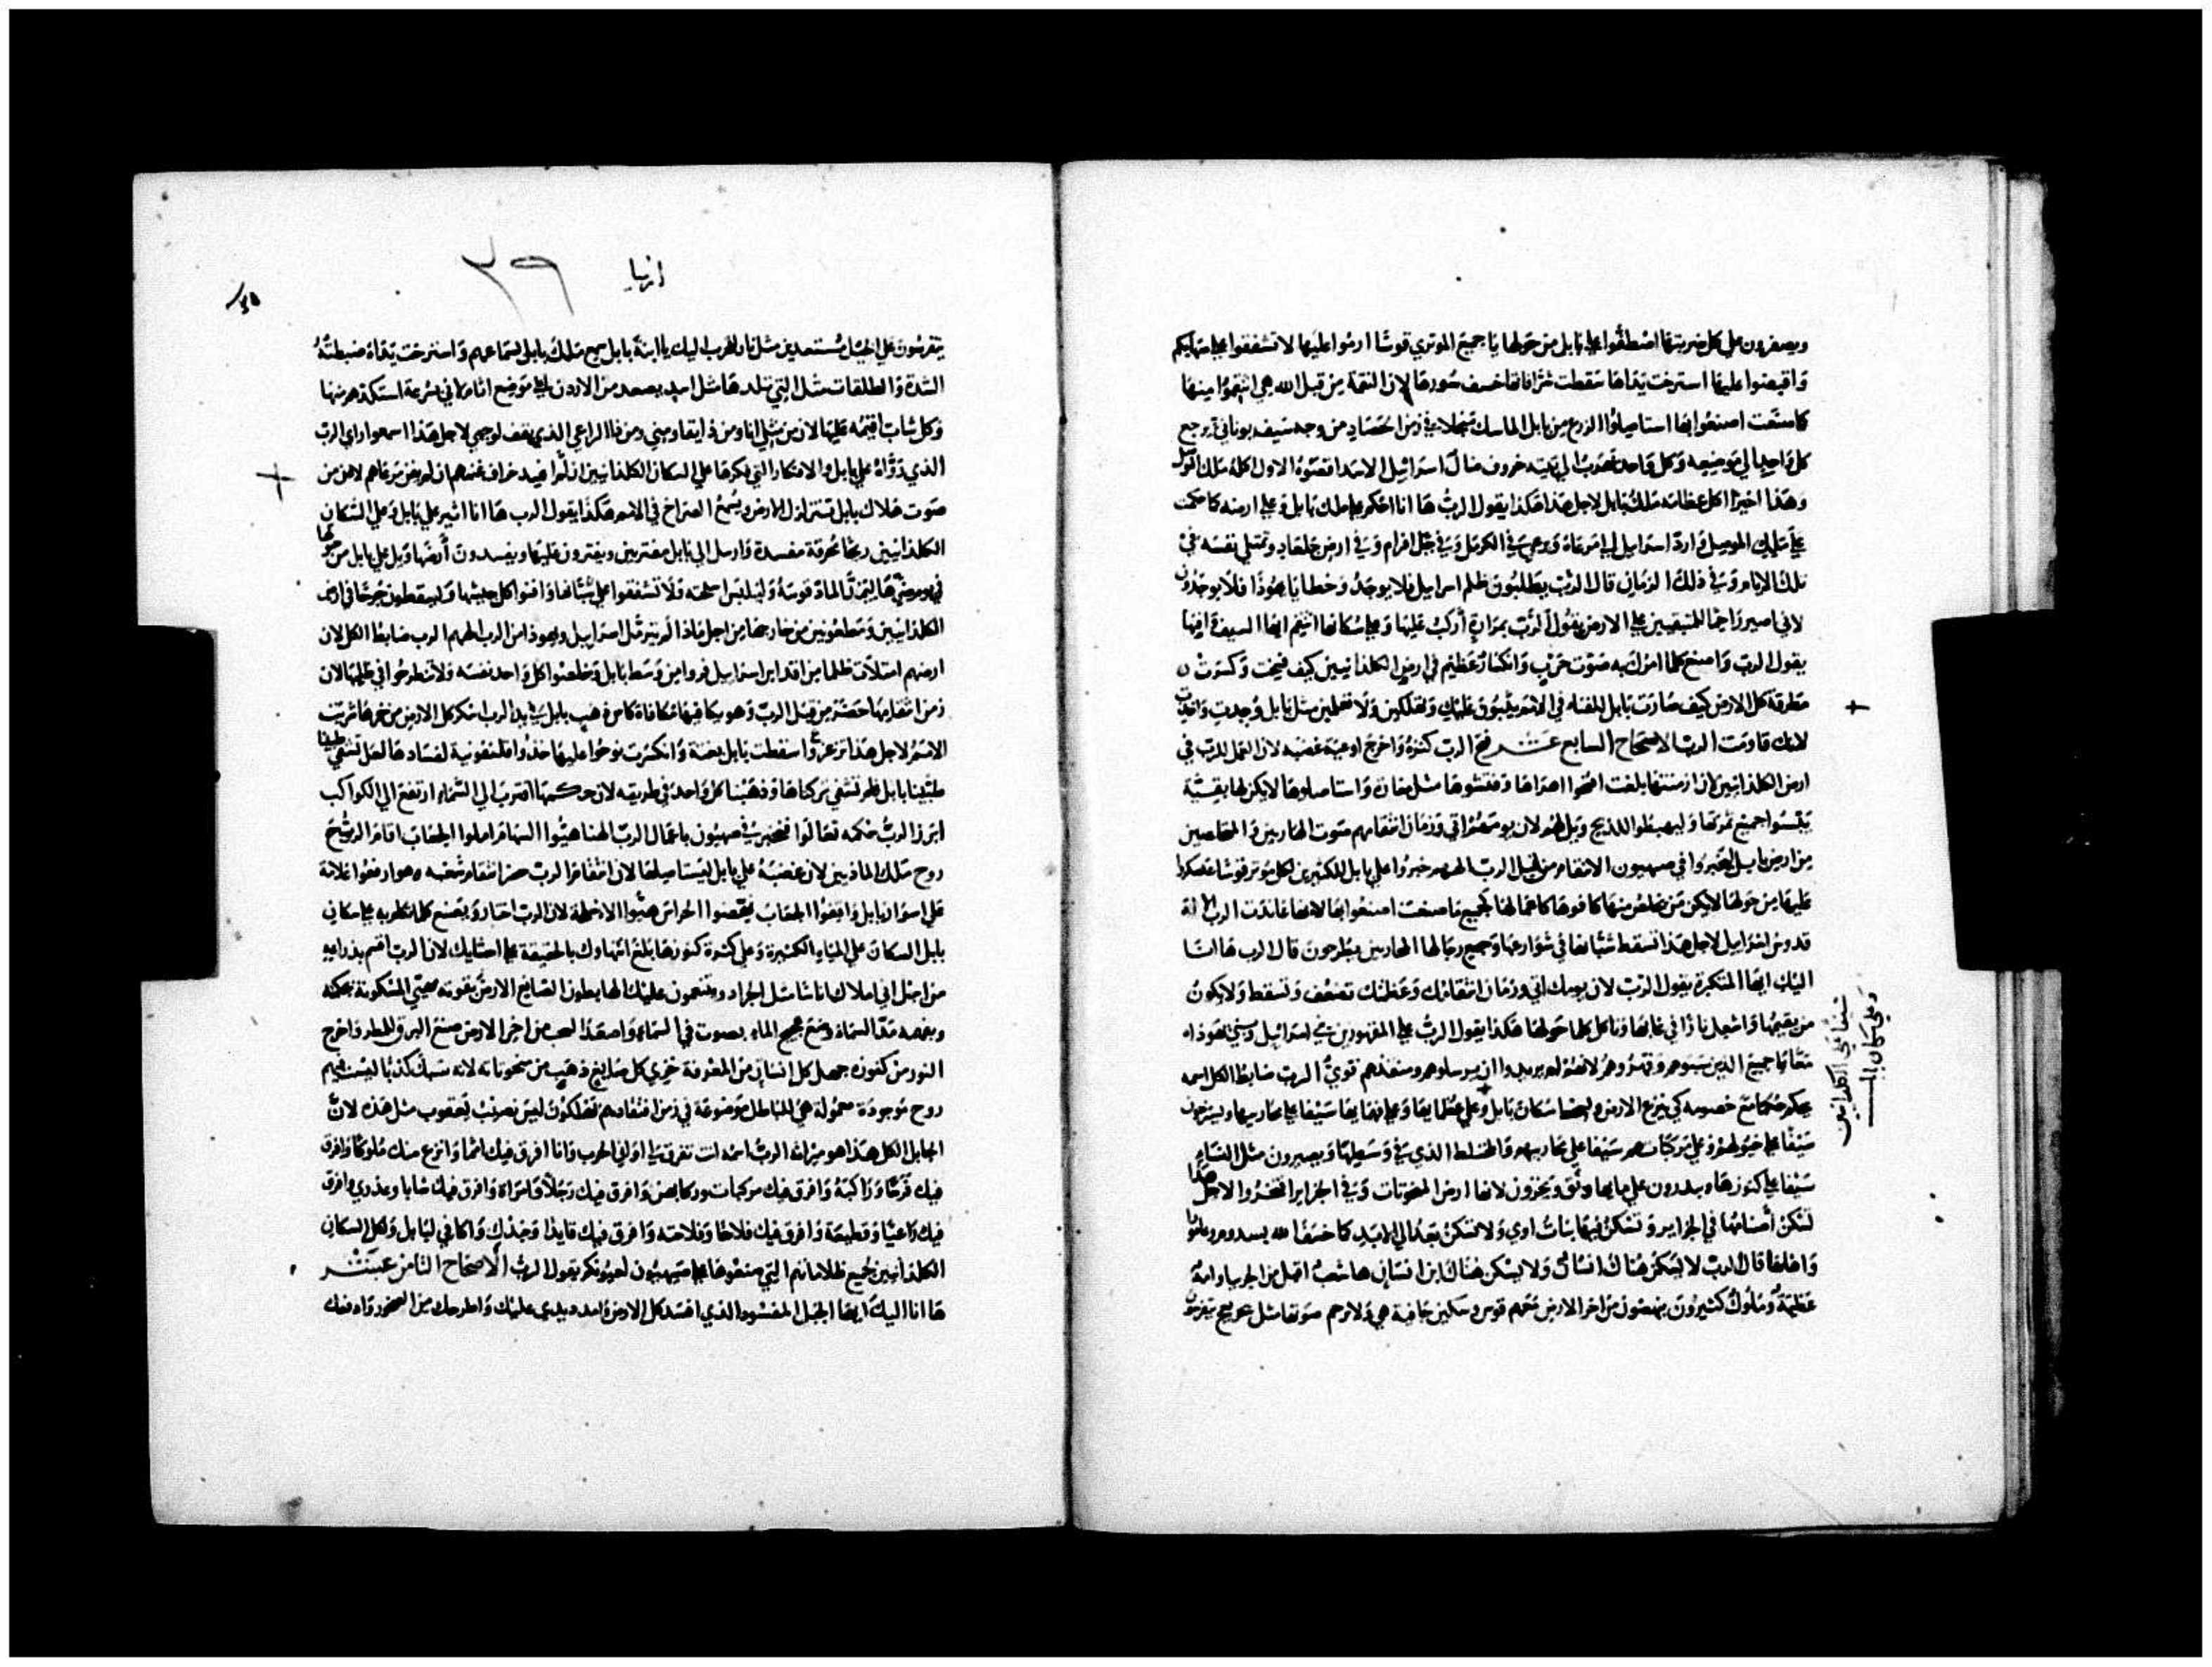 ويصفرون علي كل ضربتها اصطفوا علي بابل من حولها يا جميع الموتري قوسًا ارموا عليها لا تشفقوا علي سهامكم
واقبضوا عليها استرخت يداها سقطت شرافاتها خسف سورها لان النقمة من قبل الله هي انتقموا منها
كما صنعت اصنعوا بها استاصلوا الزرع من بابل الماسك منجلا في زمن الحصاد من وجه سيف يوناني يرجع
كل واحد الي موضعه وكل واحد يهرب الي بيته خروف ضال اسرائيل الاسد اقصوه الاول اكله ملك الموصل
وهذا اخيرا اكل عظامه ملك بابل لاجل هذا هكذا يقول الرب ها انا احكم علي ملك بابل وعلي ارضه كما حكمت
علي ملك الموصل وارد اسراييل الي مرعاه ويرعي في الكرمل وفي جبل افرام وفي ارض جلعاد وتمتلي نفسه في
تلك الايام وفي ذلك الزمان قال الرب يطلبون ظلم اسراييل فلا يوجد وخطايا يهوذا فلا يوجدون
لاني اصير راحما للمتبقيين علي الارض يقول الرب بمرارة أركب عليها وعلي سكانها انتقم ايها السيف وافنها
يقول الرب واصنع كلما امرك به صوت حرب وانكسار عظيم في ارض الكلدانيين كيف فسخت وكسرت
مطرقة كل الارض كيف صارت بابل للفناء في الامم يثبون عليك وتهلكين ولا تعلمين مثل بابل وجدت واخذت
لانك قاومت الرب الاصحاح السابع عشر فتح الرب كنزه واخرج اوعية غضبه لان العمل للرب في
ارض الكلدانيين لان ازمنتها بلغت افتحوا اهراها وفتشوها مثل مغارة واستاصلوها لا يكن لها بقية
يبسوا جميع ثمرتها وليهبطوا للذبح ويل لهم لان يومهم اتي وزمان انتقامهم صوت الهاربين والمخلصين
من ارض بابل ليخبروا في صهيون الانتقام من قبل الرب الههم خبروا علي بابل للكثيرين لكل موتر قوسا عسكروا
عليها من حولها لا يكن من يخلص منها كافوها كاعمالها كجميع ما صنعت اصنعوا بها لانها عاندت الرب الاله
قدوس اسراييل لاجل هذا تسقط شبانها في شوارعها وجميع رجالها المحاربين يطرحون قال الرب ها انا
اليك ايها المتكبرة يقول الرب لان يومك اتي وزمان انتقامك وعظمتك تضعف وتسقط ولا يكون
من يقيمها واشعل نارا في غابها وتاكل كلما حولها هكذا يقول الرب علي المقهورين بني اسرائيل وبني يهوذا
معًا يا جميع الذين سبوهم وقهروهم لانهم لم يريدوا ان يرسلوهم ومنقذهم قوي الرب ضابط الكل اسمه
يحكم حكما مع خصومه كي ينزع الارض ويبغض سكان بابل وعلي عظمايها وعلي فهمايها سيفا علي محاربيها ويسترخون
سيفًا علي خيولهم وعلي مركباتهم سيفا علي محاربيهم والمختلط الذي في وسطها ويصيرون مثل النساء
سيفا علي كنوزها ويبددون علي مايها وتق ويخزون لانها ارض المنحوتات وفي الجزاير افتخروا لاجل هذا
تسكن أصنامها في الجزاير وتسكن فيها بنات اوي ولا تسكن بعد الي الابد كما خسف الله بسدوم وعامورا
واهلها قال الرب لا يسكن هناك انسان ولا يسكن هناك ابن انسان ها شعب اقبل من الجربيا وامة
عظيمة وملوك كثيرون ينهضون من اخر الارض معهم قوس وسكين جافية هي ولا ترحم صوتها مثل عجيج يتفرسون
سيفا علي الكلدانيين
وعلي سكان بابل
ارميا
٣٩
يتفرسون علي الخيل مستعدين مثل نار للحرب اليك يا ابنة بابل سمع ملك بابل لسماعهم واسترخت يداه ضبطته
الشدة والطلقات مثل التي تلد ها مثل اسد يصعد من الاردن الي موضع اثام لاني بسرعة استكدهم منها
وكل شاب اقيمه عليها لان من مثلي انا ومن ذا يقاومني ومن ذا الراعي الذي يقف لوجهي لاجل هذا اسمعوا راي الرب
الذي روّاه علي بابل والافكار التي فكرها علي السكان الكلدانيين ان لم تفسد خراف غنمهم ان لم يفن مرعاهم لان من
صوت هلاك بابل تتزلزل الارض ويسمع الصراخ في الامم هكذا يقول الرب ها انا اثير علي بابل وعلي السكان
الكلدانيين ريحًا محرقة مفسدة وارسل الي بابل مفترين ويفترون عليها ويفسدون أرضها ويل علي بابل من حولها
في يوم ضرها ليمد الماد قوسه وليلبس اسلحته ولا تشفقوا علي شبانها وافنوا كل جيشها وليسقطون جرحًا في ارض
الكلدانيين ومطعونين من خارجها من اجل ماذا لم يترمل اسراييل ويهوذا من الرب الههم الرب ضابط الكل لان
ارضهم امتلات ظلما من اقداس اسراييل فروا من وسط بابل وخلصوا كل واحد نفسه ولا تنطرحوا في ظلمها لان
زمن انتقامها حضر من قبل الرب وهو يكافيها مكافاة كاس ذهب بابل في يد الرب اسكر كل الارض من خمرها شربت
الامم لاجل هذا تزعزعوا سقطت بابل بغتة وانكسرت نوحوا عليها خذوا فلفونية لفسادها لعل تشفي طبينا
طبّبنا بابل فلم تشفي تركناها وذهبنا كل واحد في طريقه لان حكمها اقترب الي السماء ارتفع الي الكواكب
ابرز الرب حكمه تعالوا فنخبر في صهيون باعمال الرب الهنا هيّوا السهام املوا الجعاب اقام الرب
روح ملك الماذيين لان غضبه علي بابل ليستاصلها لان انتقام الرب هو انتقام شعبه هو ارفعوا علامة
علي اسوار بابل واقفوا الجعاب يقضوا الحراس هيوا الاسلحة لان الرب اختار ويصنع كلما تكلم به علي سكان
بابل السكان علي المياه الكثيرة وعلي كثرة كنوزها بلغ انتهاوك بالحقيقة علي احشايك لان الرب اقسم بذراعه
من اجل اني املاك اناسا مثل الجراد وينتصبون عليك الهابطون الصانع الارض بقوته مهيي المسكونة بحكمته
وبفهمه مد السماء وضع عجيج الماء بصوت في السماء واصعد السحب من اخر الارض صنع البروق للمطر واخرج
النور من كنوزه جهل كل انسان من المعرفة خزي كل صايغ ذهب من منحوتاته لانه سبك كذبًا ليست فيهم
روح موجودة محمولة هي اباطل موضوعة في زمن افتقادهم تهلكون ليس نصيب يعقوب مثل هذه لان
جابل الكل هذا هو ميراثه الرب اسمه انت تفرق لي اواني الحرب وانا افرق فيك امما وانزع منك ملوكا وافرق
فيك فرسا وراكبه وافرق فيك مركبات وركابهن وافرق فيك رجلا وامراة وافرق فيك شابا وعذري وافرق
فيك راعيا وقطيعه وافرق فيك فلاحا وفلاحته وافرق فيك قايدا وجندك واكافي لبابل ولكل السكان
الكلدانيين جميع ظلاماتهم التي صنعوها علي صهيون لعيونكم يقول الرب الاصحاح الثامن عشر
ها انا اليك ايها الجبل المفسود الذي افسد كل الارض وامد يدي عليك واطرحك من الصخور وادفعك